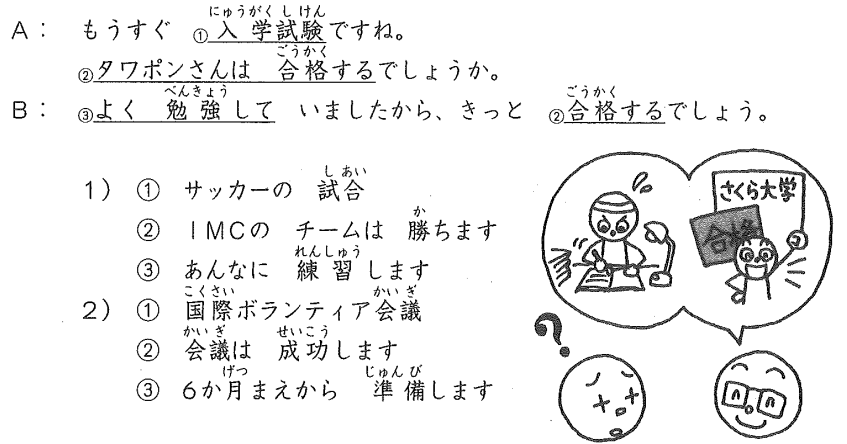 A： もうすぐ ①入学試験ですね。
にゅうがくしけん
②タワポンさんは 合格するでしょうか。
ごうかく
B： ③よく 勉強して いましたから、きっと ②合格するでしょう。
べんきょう ごうかく
1） ① サッカーの 試合
しあい
② IMCの チームは 勝ちます
か
③ あんなに 練習します
れんしゅう
2） ① 国際ボランティア会議
こくさい かいぎ
② 会議は 成功します
かいぎ せいこう
③ 6か月まえから 準備します
げつ じゅんび
さくら大学
合格
?